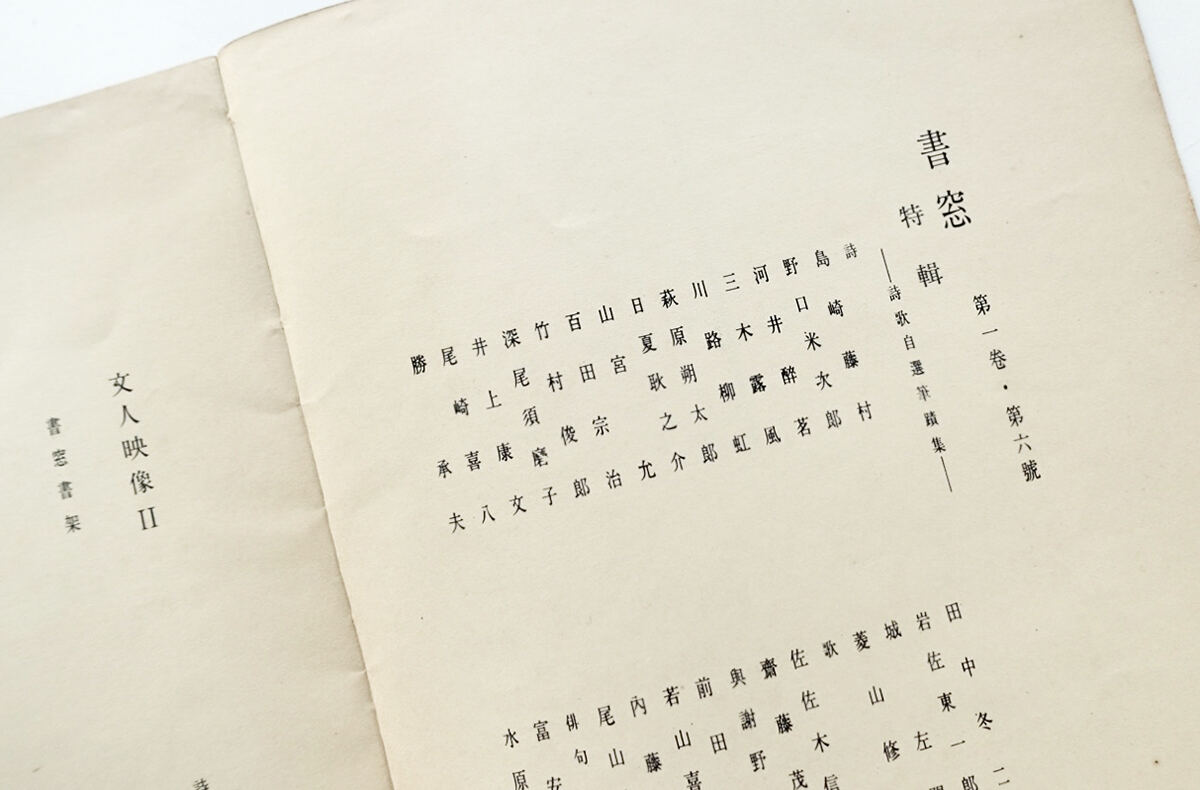 書窓
第一卷・第六號
特輯
―詩歌自選筆蹟集―
詩
島崎藤村
野口米次郎
河井醉茗
三木露風
川路柳虹
萩原朔太郎
日夏耿之介
山宮允
百田宗治
竹村俊郎
深尾須磨子
井上康文
尾崎喜八
勝承夫
田中冬二
岩佐東一郎
城左
菱山修
歌
佐佐木信
齋藤茂
與謝野
前田
若山喜
內藤
尾山
俳句
富安
水原
文人映像II
書窓書架
詩